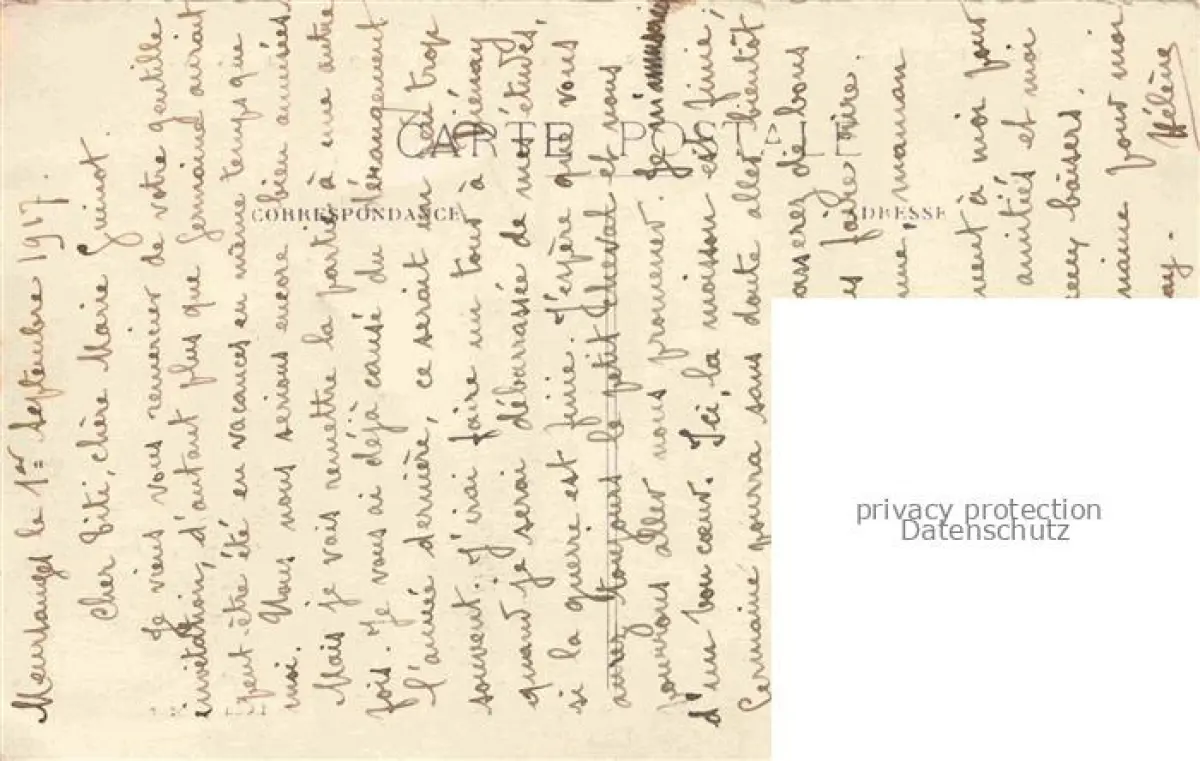 Mersanges le 1er Septembre 1917.
Cher Titi, chère Marie Guinot.
Je viens vous remercier de votre gentille
invitation, d'autant plus que Germaine aurait
peut-être été en vacances en même temps que
moi. Nous nous serions encore bien amusées.
Mais je vais remettre la partie à une autre
fois. Je vous ai déjà causé du dérangement
l'année dernière, ce serait un peu trop
souvent. J'irai faire un tour à
quand je serai débarrassée de mes études,
si la guerre est finie. J'espère que vous
aurez toujours le petit cheval et nous
pourrons aller nous promener. Je
d'un bon cœur. Ici, la moisson est finie,
Germaine pourra sans doute aller bientôt
de bons
faire rire.
maman
à moi pour
amitiés et moi
baisers.
pour moi
Hélène
CARTE POSTALE
CORRESPONDANCE
ADRESSE
privacy protection
Datenschutz